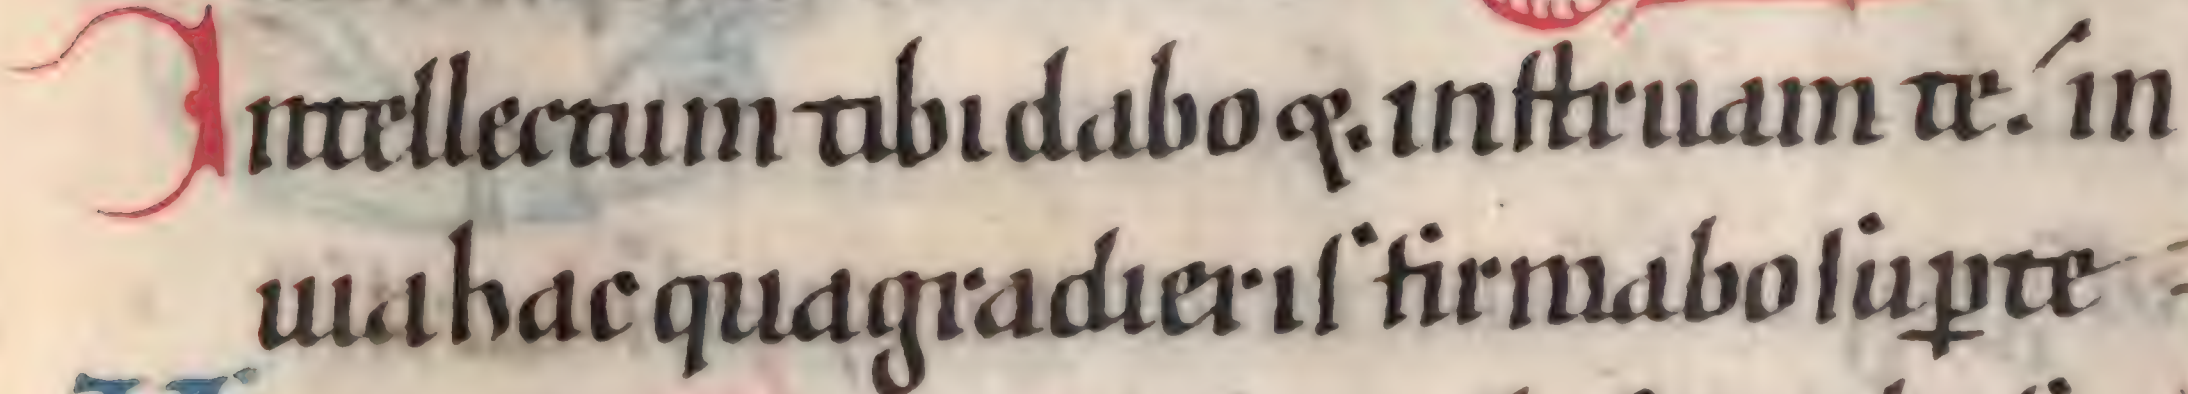 Intellectum tibi dabo q. inſtruam te. in
uia hac qua gradieriſ firmabo ſuꝑ te